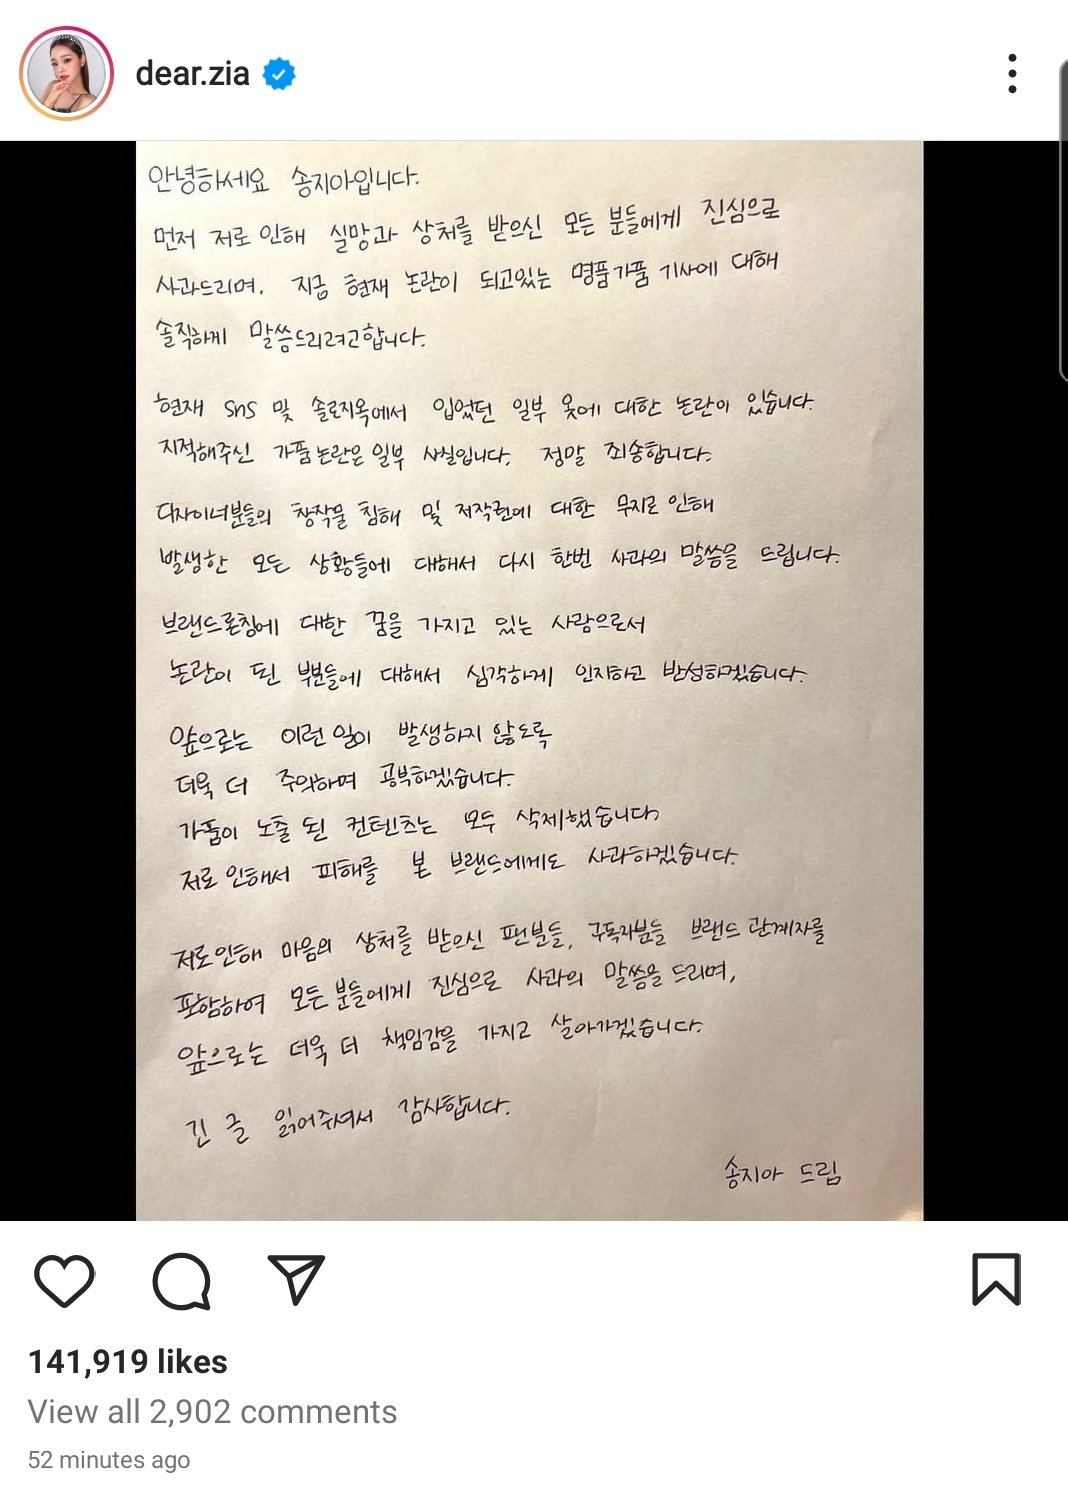 dear.zia
안녕하세요 송지아입니다.
먼저 저로 인해 실망과 상처를 받으신 모든 분들에게 진심으로
사과드리며, 지금 현재 논란이 되고있는 명품가품 기사에 대해
솔직하게 말씀드리려고합니다.
현재 sns 및 솔로지옥에서 입었던 일부 옷에 대한 논란이 있습니다.
지적해주신 가품논란은 일부 사실입니다. 정말 죄송합니다.
디자이너분들의 창작물 침해 및 저작권에 대한 무지로 인해
발생한 모든 상황들에 대해서 다시 한번 사과의 말씀을 드립니다.
브랜드론칭에 대한 꿈을 가지고 있는 사람으로서
논란이 된 부분들에 대해서 심각하게 인지하고 반성하겠습니다.
앞으로는 이런 일이 발생하지 않도록
더욱 더 주의하며 공부하겠습니다.
가품이 노출 된 컨텐츠는 모두 삭제했습니다.
저로 인해서 피해를 본 브랜드에게도 사과하겠습니다.
저로인해 마음의 상처를 받으신 팬분들, 구독자분들 브랜드 관계자를
포함하여 모든 분들에게 진심으로 사과의 말씀을 드리며,
앞으로는 더욱 더 책임감을 가지고 살아가겠습니다.
긴 글 읽어주셔서 감사합니다.
송지아 드림
141,919 likes
View all 2,902 comments
52 minutes ago